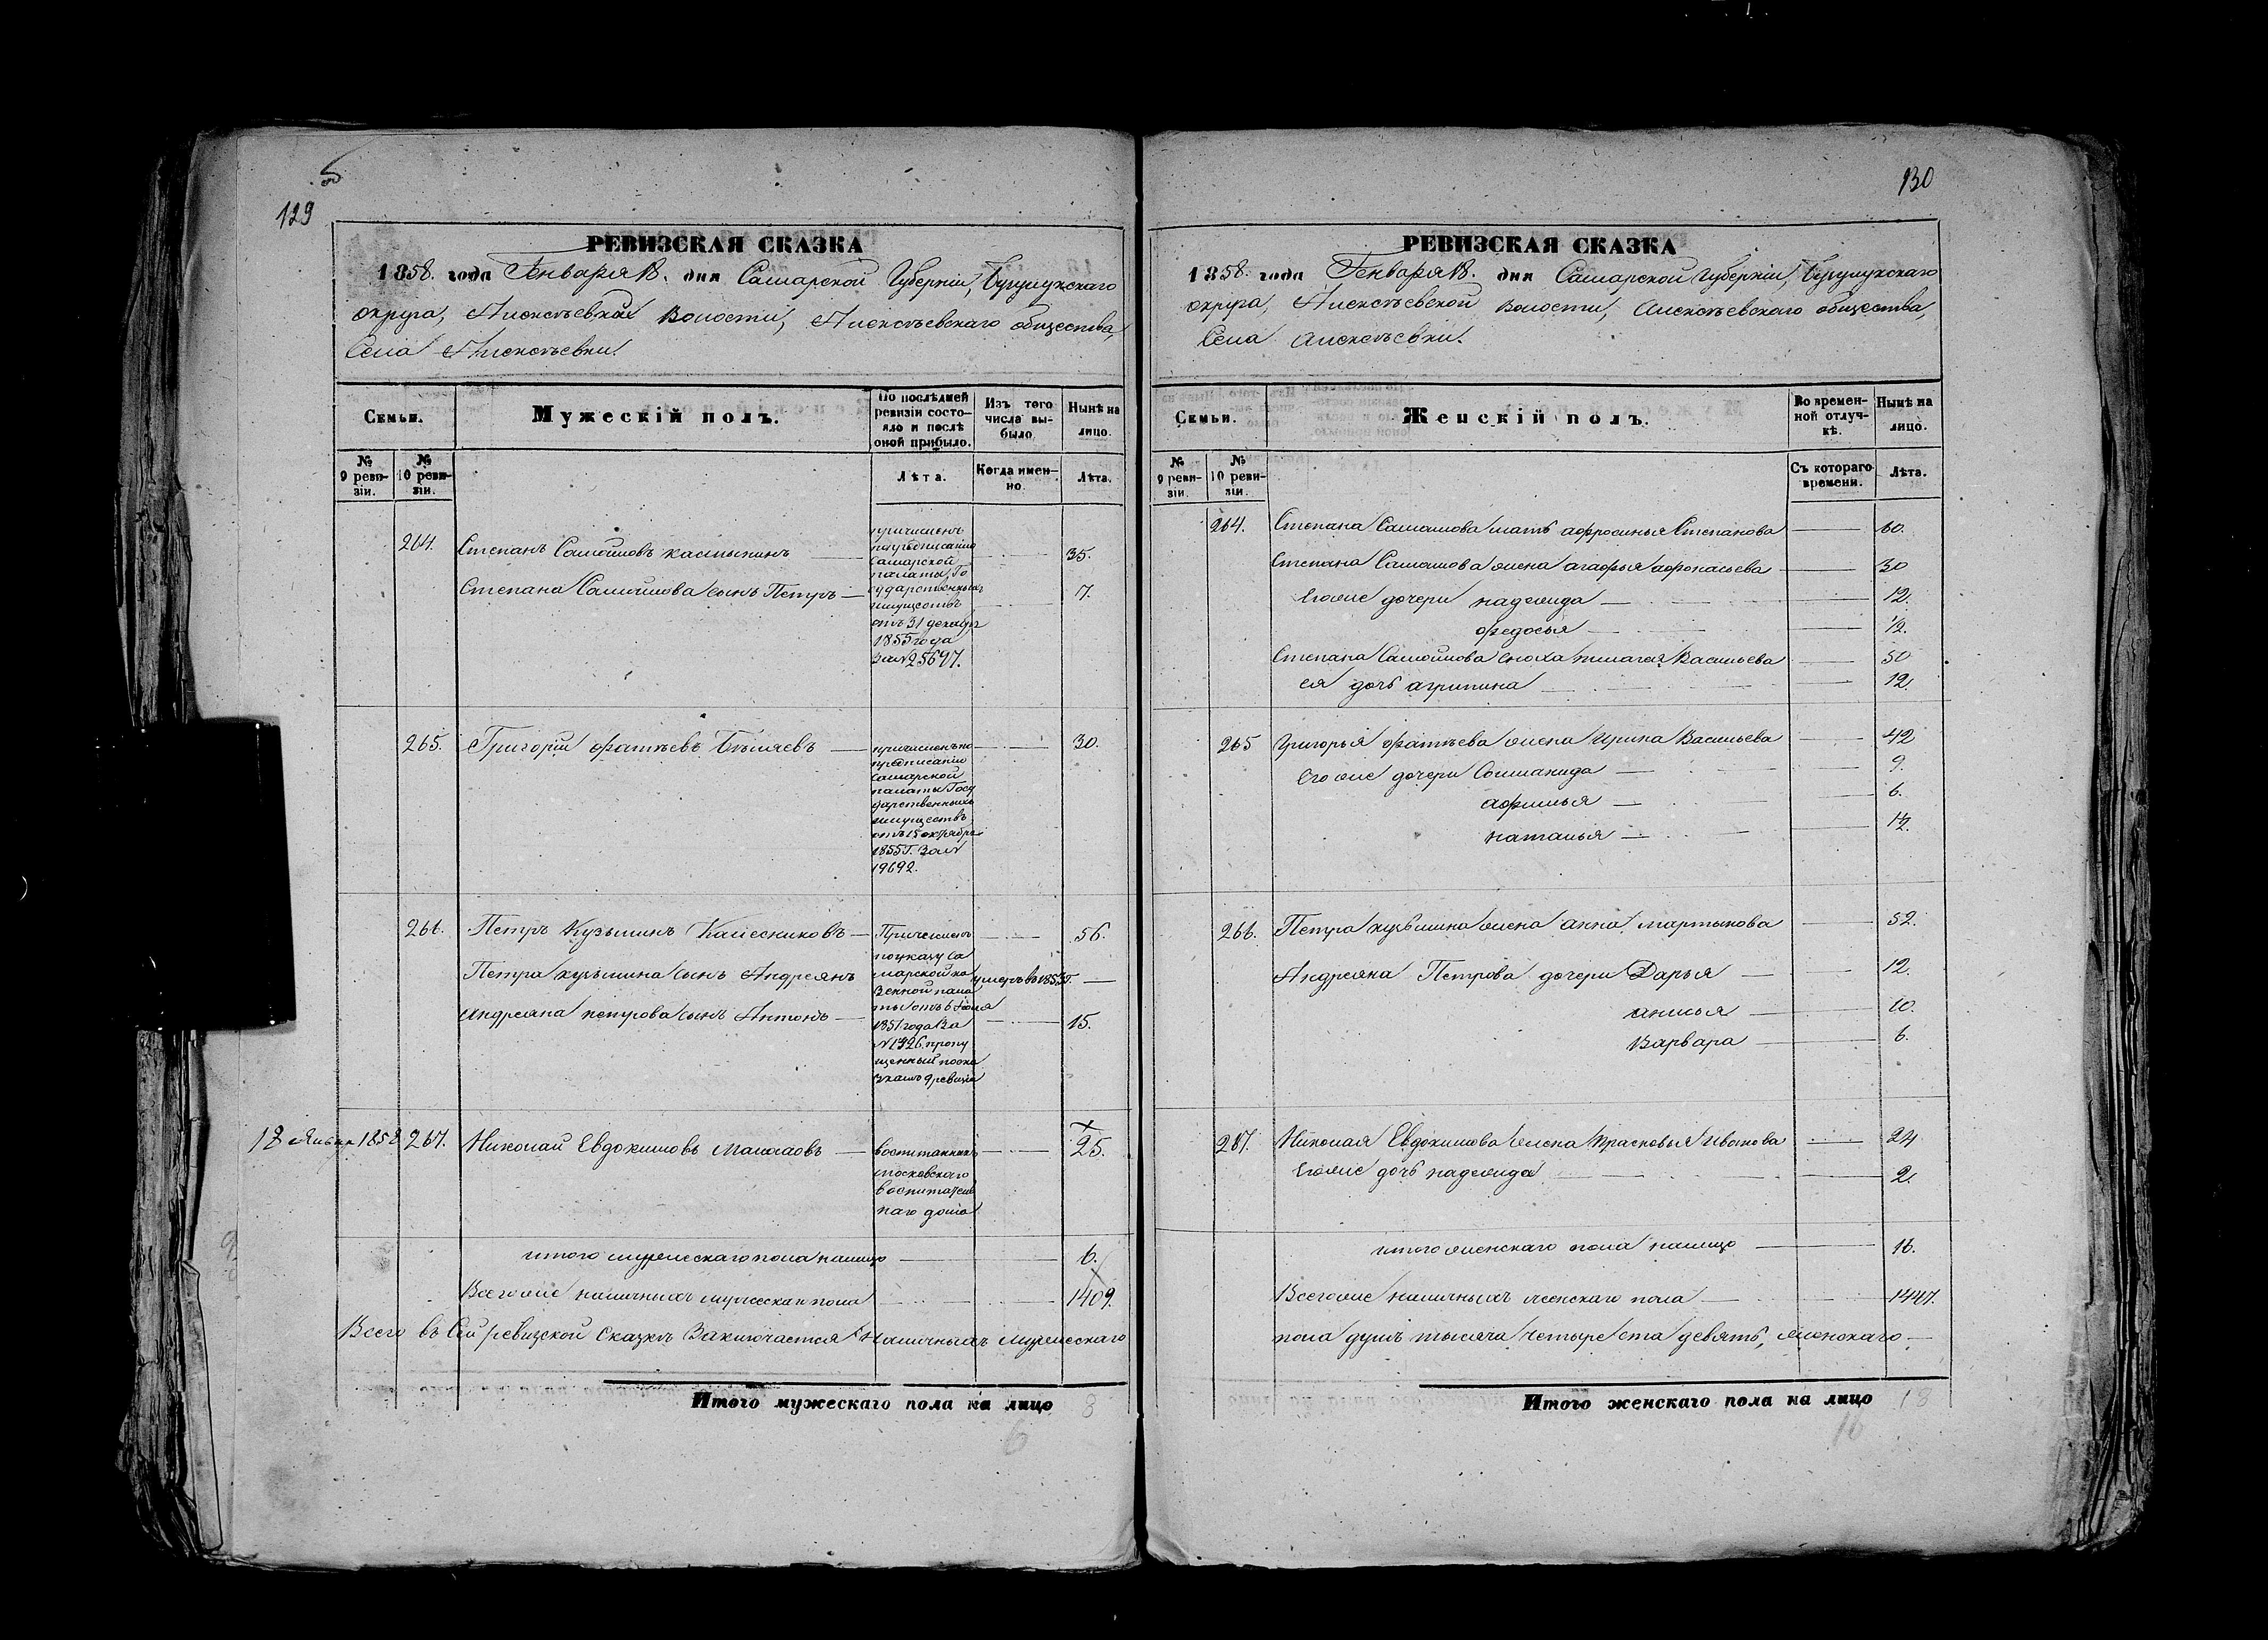 129
РЕВИЗСКАЯ СКАЗКА
1858. года Генваря 18. дня Самарской Губерніи, Бузулукскаго
округа, Алексѣевской Волости, Алексѣевскаго общества,
Села Алексѣевки.
Семьи.
Мужескій полъ.
По послѣдней ревизіи состояло и послѣ оной прибыло.
Изъ того числа выбыло.
Нынѣ на лицо.
№ 9 ревизіи.
№ 10 ревизіи.
Лѣта.
Когда именно.
Лѣта.
264. Степанъ Самойловъ 35.
Степана Самойлова сынъ Петръ — 7.
причисленъ
по предписанію
Самарской
палаты Го
сударственныхъ
имуществъ
отъ 31 декабр
1855 года
за № 25697.
265. Григорій Фатѣевъ Бѣляевъ — 30.
причисленъ по
предписанію
Самарской
палаты Госу
дарственныхъ
имуществъ
отъ 15 октября
1855 г. за №
19692.
266. Петръ Кузьминъ Калесниковъ — 56.
Петра кузьмина сынъ Андреянъ умеръ въ 1855 г. —
Андреяна петрова сынъ Антонъ — 15.
Причисленъ
по указу Са
марской ка
зенной пала
ты отъ 6 Іюня
1851 года за
№ 1926 пропу
щенный по ска
замъ 9 ревизіи
18 Января 1858 267. Николай Евдокимовъ — 25.
воспитанникъ
московскаго
воспитатель
наго дома
итого мужескаго пола налицо — 6.
Всего же наличныхъ мужескаго пола 1409.
Всего въ сей ревизской сказкѣ Заключается наличныхъ мужескаго
Итого мужескаго пола на лицо 8
6
130
РЕВИЗСКАЯ СКАЗКА
1858. года Генваря 18. дня Самарской Губерніи, Бузулукскаго
округа, Алексѣевской Волости, Алексѣевскаго общества,
Села Алексѣевки.
Семьи.
Женскій полъ.
Во временной отлучкѣ.
Нынѣ на лицо.
№ 9 ревизіи.
№ 10 ревизіи.
Съ котораго времени.
Лѣта.
264. Степана Самойлова мать афросинья Степанова — 60.
Степана Самойлова жена агафья афонасьева — 30
Егоже дочери надежда — 12.
федосья — 12.
Степана Самойлова сноха Васильева — 50
ея дочь агрипина — 12.
265 Григорья фатѣева жена Ирина Васильева — 42
Егоже дочери Соломанида — 9.
афимья — 6.
наталья — 12.
266. Петра кузьмина жена анна мартынова — 52.
Андреяна Петрова дочери Дарья — 12.
анисья — 10.
Варвара — 6.
267. Николая Евдокимова жена Прасковья Иванова — 24
Егоже дочь надежда — 2.
итого женскаго пола налицо — 16.
Всегоже наличныхъ женскаго пола — 1447.
пола душъ тысяча четыреста девять, женскаго —
Итого женскаго пола на лицо 18
16